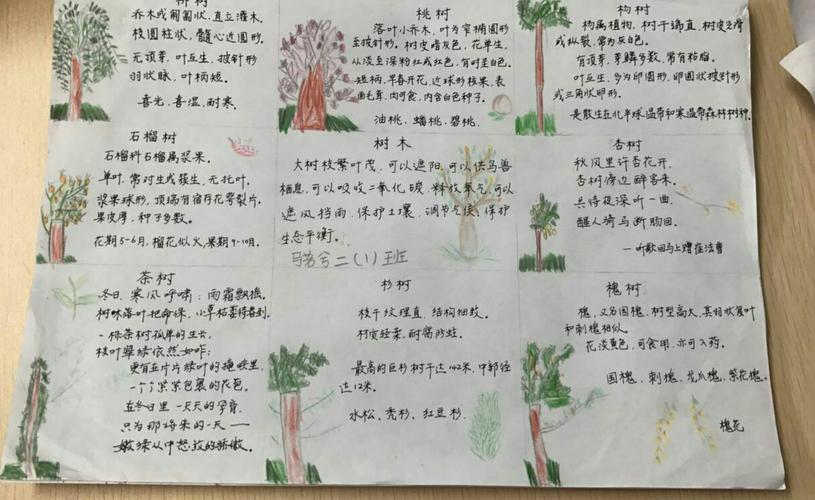 柳树
乔木或匍匐状，直立灌木。
枝圆柱状，髓心近圆形。
无顶芽，叶互生，披针形
羽状脉，叶柄短。
喜光，喜湿，耐寒。
桃树
落叶小乔木，叶为窄椭圆形
至披针形。树皮暗灰色，花单生，
从淡至深粉红或红色，有时呈白色。
短柄，早春开花，近球形核果，表
面毛茸，肉可食，内含白色种子。
油桃，蟠桃，碧桃。
杨树
杨属植物，树干端直，树皮光滑
或纵裂，常为灰白色。
有顶芽，芽鳞多数，常有粘脂。
叶互生，多为卵圆形，卵圆状披针形
或三角状卵形。
是散生在北半球温带和寒温带森林树种。
石榴树
石榴科石榴属浆果。
单叶，常对生或簇生，无托叶。
浆果球形，顶端有宿存花萼裂片，
果皮厚，种子多数。
花期5-6月，榴花似火，果期9-10月。
树木
大树枝繁叶茂，可以遮阳，可以供鸟兽
栖息，可以吸收二氧化碳，释放氧气，可以
遮风挡雨，保护土壤，调节气候，保护
生态平衡。
二（1）班
杏树
秋风里许杏花开，
杏树傍边醉客来。
共待夜深听一曲，
醒人骑马断肠回。
—听歌回马上赠崔法曹
茶树
冬日，寒风呼啸；雨霜飘摇。
树咻落叶把命保，小草枯萎待春到
一株茶树孤单的生长，
枝叶翠绿依然如昨。
更有在片片绿叶的掩映里，
一个个紧紧包裹的花苞。
在冬日里一天天的孕育，
只为那将来的一天——
嫩绿从中怒放的骄傲。
杉树
枝干纹理直，结构细致。
材质轻柔，耐腐防蛀。
最高的巨杉树干达142米，中部径
达12米。
水松、秃杉、红豆杉
槐树
槐，又名国槐，树型高大，其羽状复叶
和刺槐相似。
花淡黄色，可食用，亦可入药。
国槐，刺槐，龙爪槐，紫花槐。
槐花